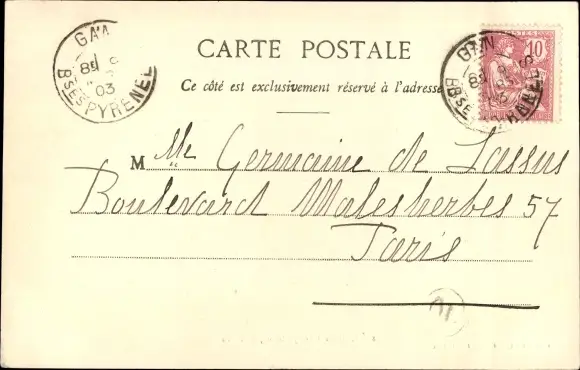 CARTE POSTALE
Ce côté est exclusivement réservé à l'adresse
10
03
BSES PYRENEE
M Lle Germaine de Lassus
Boulevard Malesherbes 57
Paris